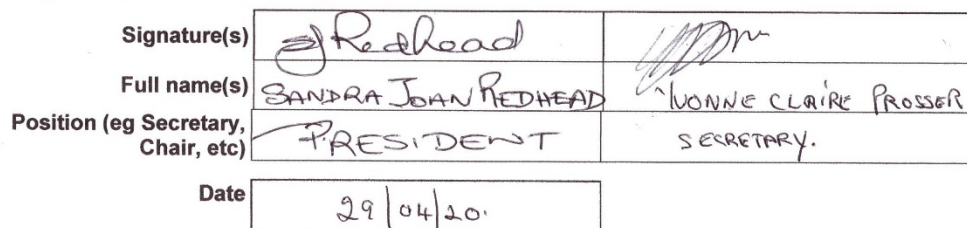 Signature(s) SJRedhead
Full name(s) SANDRA JOAN REDHEAD YVONNE CLAIRE PROSSER
Position (eg Secretary, PRESIDENT SECRETARY.
Chair, etc)
Date 29/04/20.